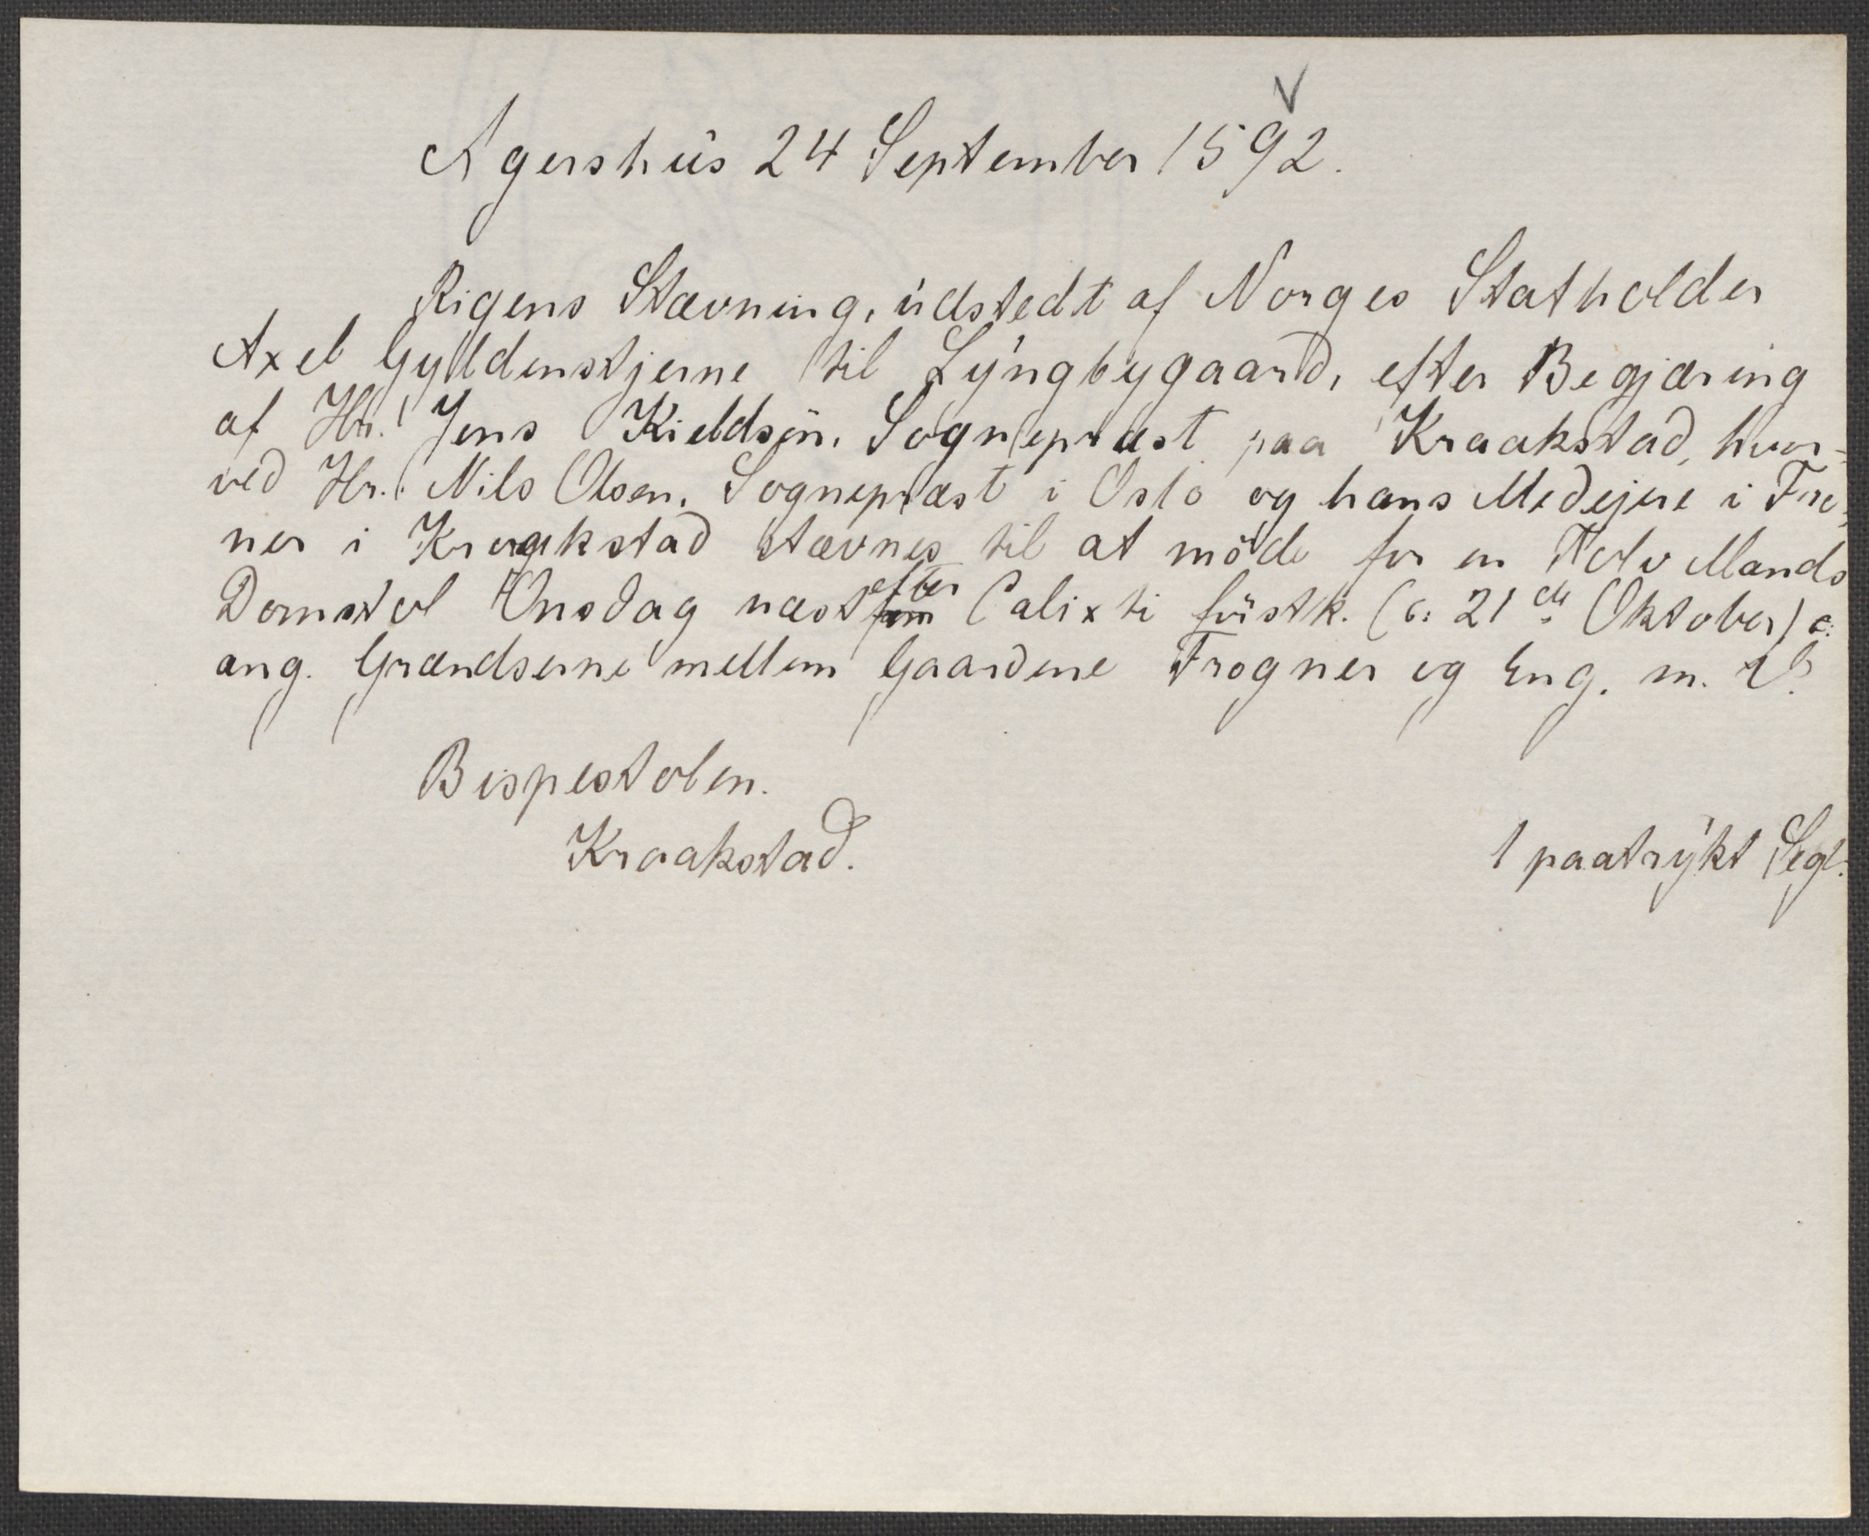 Agershus 24 September 1592.
Rigens Stævning, udstedt af Norges Statholder
Axel Gyldenstjerne til Lyngbygaard, efter Begjæring
af Hr. Jens Kieldsøn, Sognepræst paa Kraakstad, hvor-
ved Hr. Nils Olsen, Sognepræst i Oslo og hans Medejere i Fro-
ner i Kraakstad stævnes til at möde for en Tolv Mands
Domstol Onsdag næst efter Calixti först k. (ɔ: 21de Oktober)
ang. Grændserne mellem Gaardene Frogner og Eng. m. V.
Bispestolen.
Kraakstad.
1 paatrykt Segl.